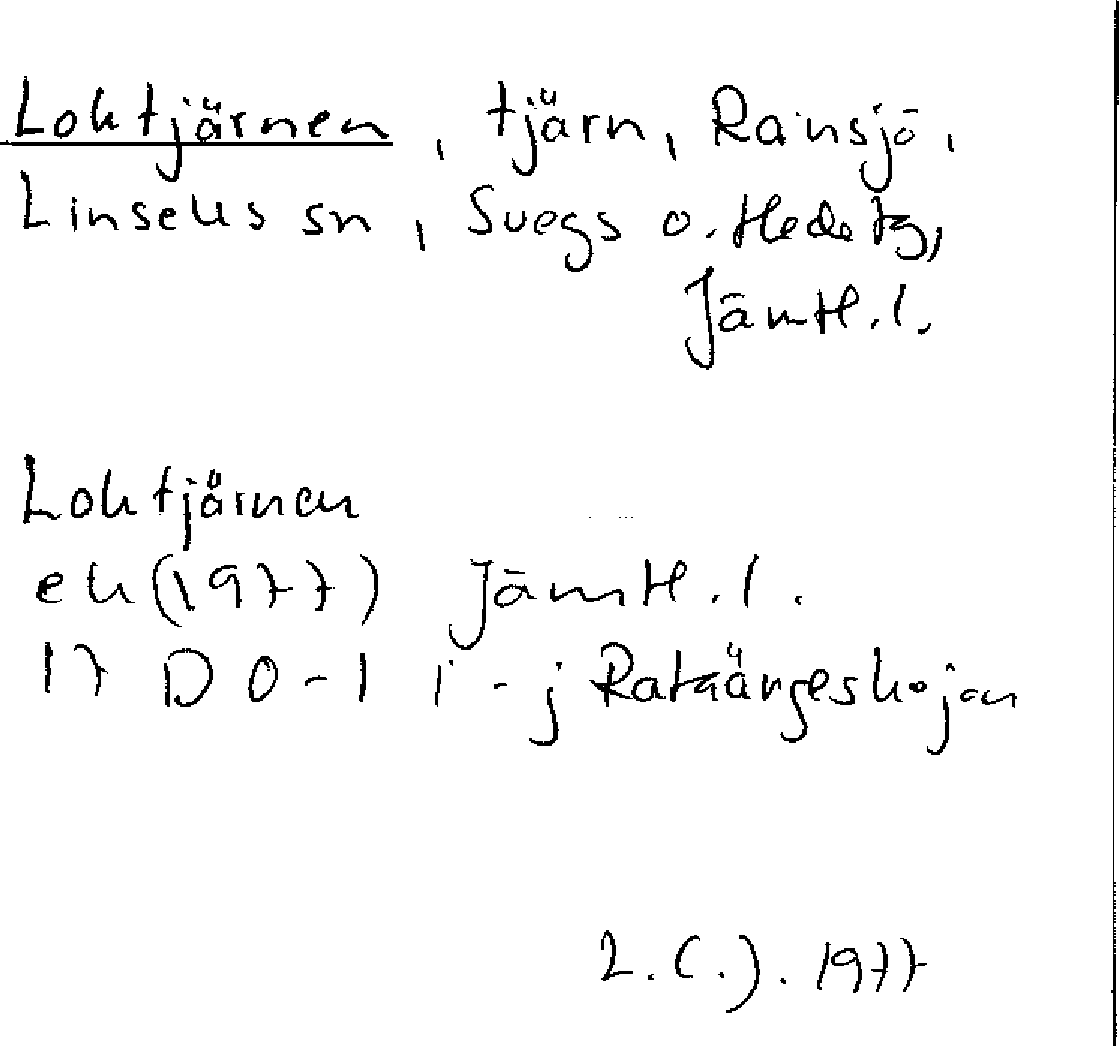 Loktjärnen, tjärn, Ransjö,
Linsells sn, Svegs o. Hede tg,
Jämtl. l.
Loktjärnen
ek (1977) Jämtl. l.
17 D 0-1 i-j Rataängeskojan
2.(.). 1977